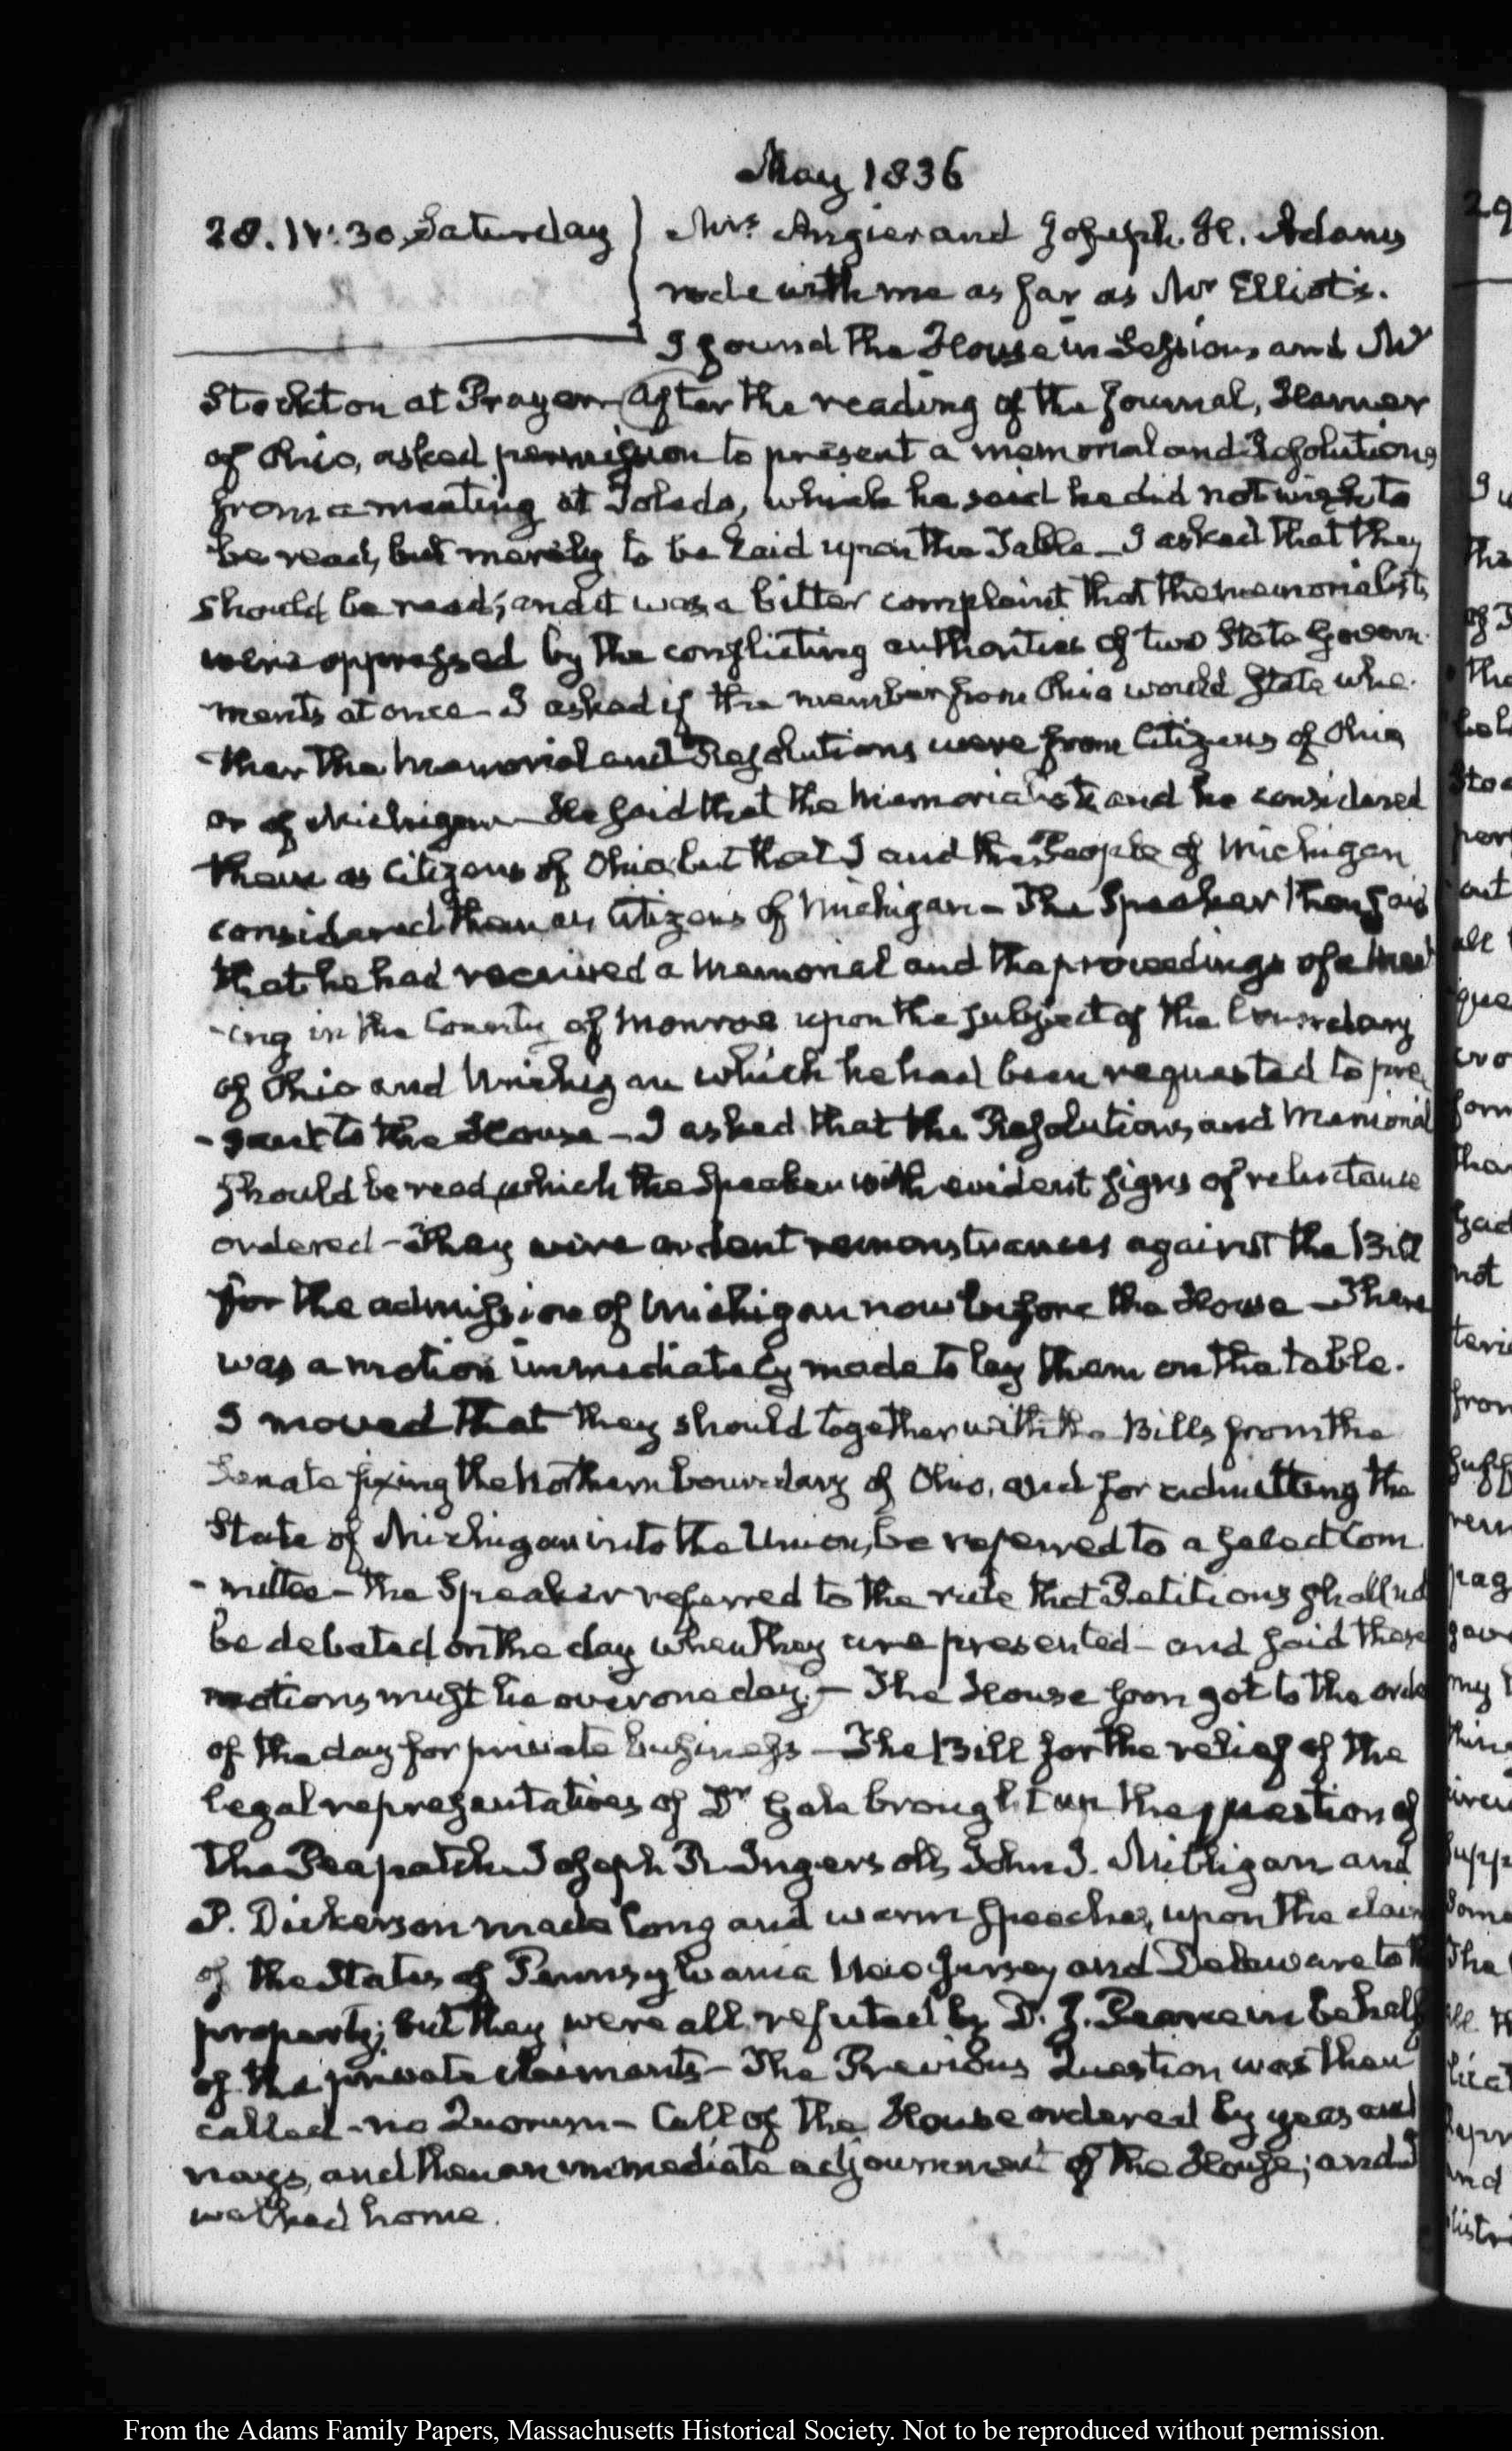 May 1836
28. IV:30. Saturday
Mrs. Angier and Joseph H. Adams
rode with me as far as Mr Elliot's.
I found the House in Session, and Mr
Stockton at Prayer. After the reading of the Journal, Hamer
of Ohio, asked permission to present a memorial and Resolutions
from a meeting at Toledo, which he said he did not wish to
be read, but merely to be laid upon the Table – I asked that they
should be read; and it was a bitter complaint that the memorialists
were oppressed by the conflicting authorities of two State Govern-
ments at once – I asked if the member from Ohio would state whe-
ther the Memorial and Resolutions were from Citizens of Ohio
or of Michigan – He said that the Memorialists and he considered
them as Citizens of Ohio, but that I and the People of Michigan
considered them as Citizens of Michigan – The Speaker then said
that he had received a Memorial and the proceedings of a meet
-ing in the County of Monroe upon the subject of the boundary
of Ohio and Michigan which he had been requested to pre
-sent to the House – I asked that the Resolutions and Memorial
should be read, which the Speaker with evident signs of reluctance
ordered – They were ardent remonstrances against the Bill
for the admission of Michigan now before the House – There
was a motion immediately made to lay them on the table.
I moved that they should together with the Bills from the
Senate fixing the Northern boundary of Ohio, and for admitting the
State of Michigan into the Union, be referred to a select Com
-mittee – the Speaker referred to the rule that Petitions shall not
be debated on the day when they are presented – and said these
motions must lie over one day. – The House soon got to the order
of the day for private business – The Bill for the relief of the
legal representatives of Dr Gale brought up the question of
the Peapatch. Joseph R. Ingersoll, John J. Milligan and
P. Dickerson made long and warm speeches, upon the claim
of the States of Pennsylvania New Jersey and Delaware to the
property; but they were all refuted by D. J. Pearce in behalf
of the private claimants – The Previous Question was then
called – no Quorum – Call of the House ordered by yeas and
nays, and then an immediate adjournment of the House; and I
walked home.
From the Adams Family Papers, Massachusetts Historical Society. Not to be reproduced without permission.